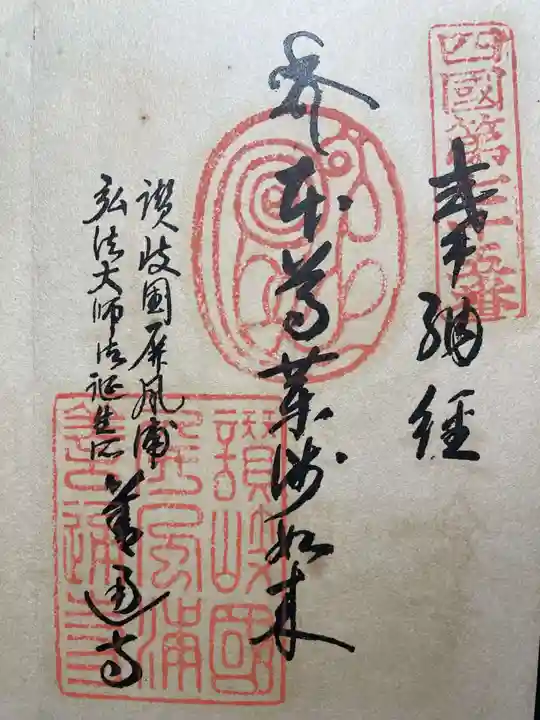 四國第七十五番
奉納經
本尊薬師如来
讃岐国屏風浦
弘法大師御誕生所
善通寺
讃岐國
屏風浦
善通寺